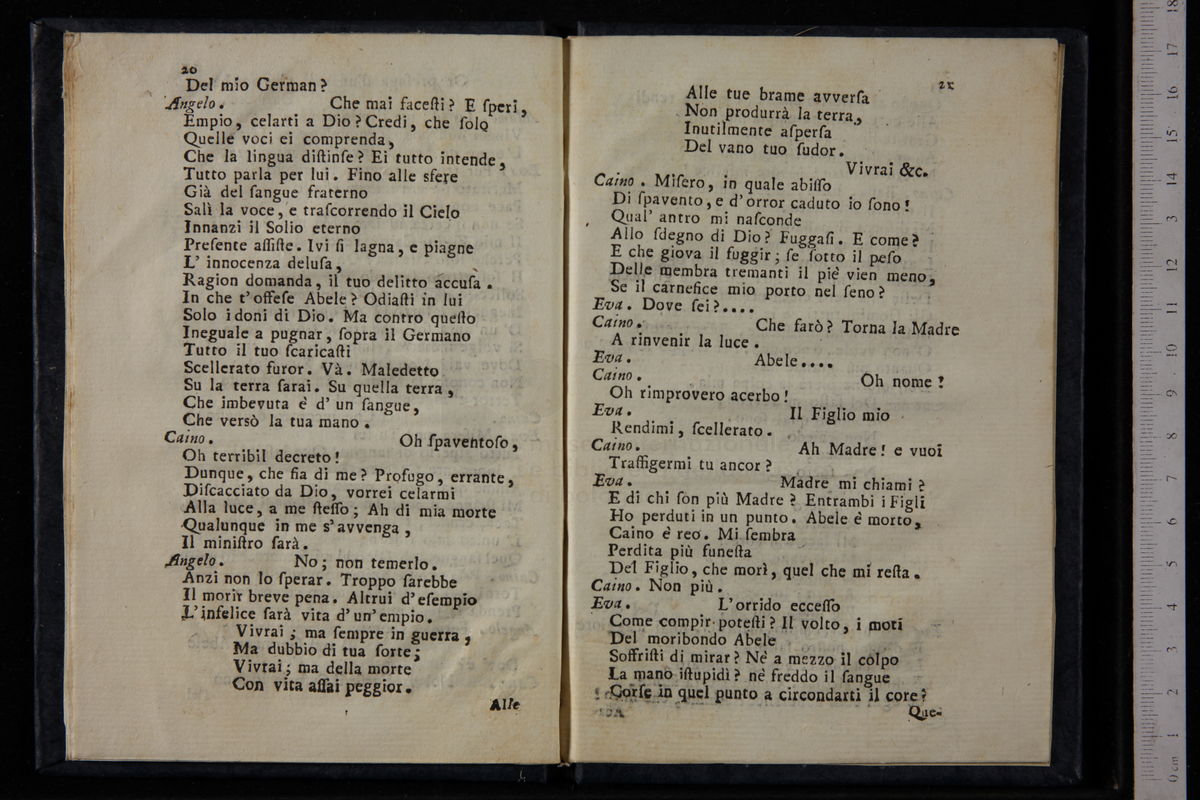 20
Del mio German?
Angelo. Che mai faceſti? E ſperi,
Empio, celarti a Dio? Credi, che ſolo
Quelle voci ei comprenda,
Che la lingua diſtinſe? Ei tutto intende,
Tutto parla per lui. Fino alle sfere
Già del ſangue fraterno
Salì la voce, e traſcorrendo il Cielo
Innanzi il Solio eterno
Preſente aſſiſte. Ivi ſi lagna, e piagne
L' innocenza deluſa,
Ragion domanda, il tuo delitto accuſa.
In che t'offeſe Abele? Odiaſti in lui
Solo i doni di Dio. Ma contro queſto
Ineguale a pugnar, ſopra il Germano
Tutto il tuo ſcaricaſti
Scellerato furor. Và. Maledetto
Su la terra ſarai. Su quella terra,
Che imbevuta è d' un ſangue,
Che versò la tua mano.
Caino. Oh ſpaventoſo,
Oh terribil decreto!
Dunque, che fia di me? Profugo, errante,
Diſcacciato da Dio, vorrei celarmi
Alla luce, a me ſteſſo; Ah di mia morte
Qualunque in me s'avvenga,
Il miniſtro ſarà.
Angelo. No; non temerlo.
Anzi non lo ſperar. Troppo ſarebbe
Il morir breve pena. Altrui d'eſempio
L'infelice ſarà vita d'un'empio.
Vivrai; ma ſempre in guerra,
Ma dubbio di tua ſorte;
Vivrai; ma della morte
Con vita aſſai peggior.
Alle
21
Alle tue brame avverſa
Non produrrà la terra,
Inutilmente aſperſa
Del vano tuo ſudor.
Vivrai &c.
Caino. Miſero, in quale abiſſo
Di ſpavento, e d'orror caduto io ſono!
Qual' antro mi naſconde
Allo ſdegno di Dio? Fuggaſi. E come?
E che giova il fuggir; ſe ſotto il peſo
Delle membra tremanti il piè vien meno,
Se il carnefice mio porto nel ſeno?
Eva. Dove ſei?....
Caino. Che farò? Torna la Madre
A rinvenir la luce.
Eva. Abele....
Caino. Oh nome!
Oh rimprovero acerbo!
Eva. Il Figlio mio
Rendimi, ſcellerato.
Caino. Ah Madre! e vuoi
Traffigermi tu ancor?
Eva. Madre mi chiami?
E di chi ſon più Madre? Entrambi i Figli
Ho perduti in un punto. Abele è morto,
Caino è reo. Mi ſembra
Perdita più funeſta
Del Figlio, che morì, quel che mi reſta.
Caino. Non più.
Eva. L'orrido ecceſſo
Come compir poteſti? Il volto, i moti
Del moribondo Abele
Soffriſti di mirar? Nè a mezzo il colpo
La mano iſtupidì? nè freddo il ſangue
Corſe in quel punto a circondarti il core?
Que-